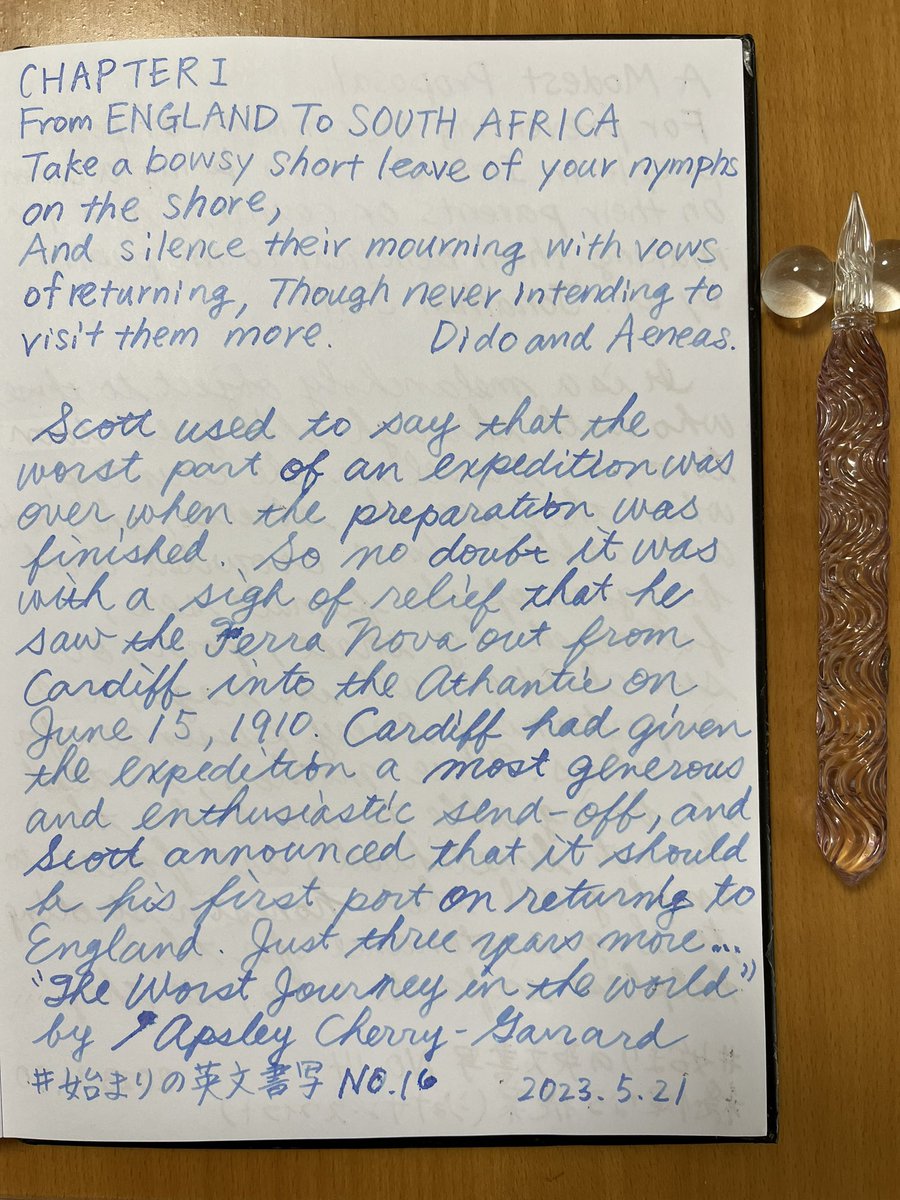 CHAPTER I
From ENGLAND To SOUTH AFRICA
Take a bowsy short leave of your nymphs
on the shore,
And silence their mourning with vows
of returning, Though never intending to
visit them more. Dido and Aeneas.
Scott used to say that the
worst part of an expedition was
over when the preparation was
finished. So no doubt it was
with a sigh of relief that he
saw the Terra Nova out from
Cardiff into the Atlantic on
June 15, 1910. Cardiff had given
the expedition a most generous
and enthusiastic send-off, and
Scott announced that it should
be his first port on returnig to
England. Just three years more...
"The Worst Journey in the world"
by Apsley Cherry-Garrard
#始まりの英文書写 NO.16 2023.5.21